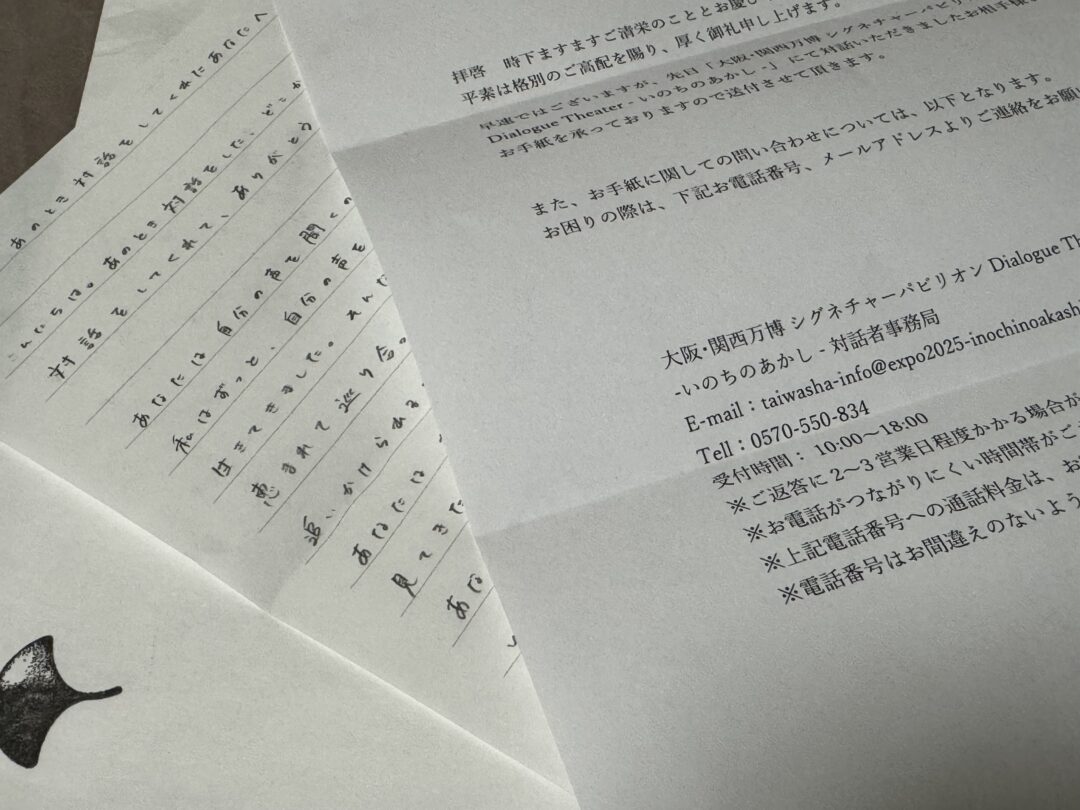 拝啓 時下ますますご清栄のこととお慶び
平素は格別のご高配を賜り、厚く御礼申し上げます。
早速ではございますが、先日「大阪・関西万博 シグネチャーパビリオン
Dialogue Theater - いのちのあかし -」にて対話いただきましたお相手様
お手紙を承っておりますので送付させて頂きます。
また、お手紙に関しての問い合わせについては、以下となります。
お困りの際は、下記お電話番号、メールアドレスよりご連絡をお願い
大阪・関西万博 シグネチャーパビリオン Dialogue Th
-いのちのあかし - 対話者事務局
E-mail：taiwasha-info@expo2025-inochinoakash
Tell：0570-550-834
受付時間： 10:00～18:00
※ご返答に 2～3 営業日程度かかる場合が
※お電話がつながりにくい時間帯がご
※上記電話番号への通話料金は、お
※電話番号はお間違えのないよう
あのとき対話をしてくれたあなたへ
こんにちは。あのとき対話をした、どこか
対話をしてくれて、ありがとう
あなたには自分の声を聞くの
私はずっと、自分の声を
生きてきました。そんな
恵まれて巡り合の
追いかけられる
あなたには
見てきた
あな